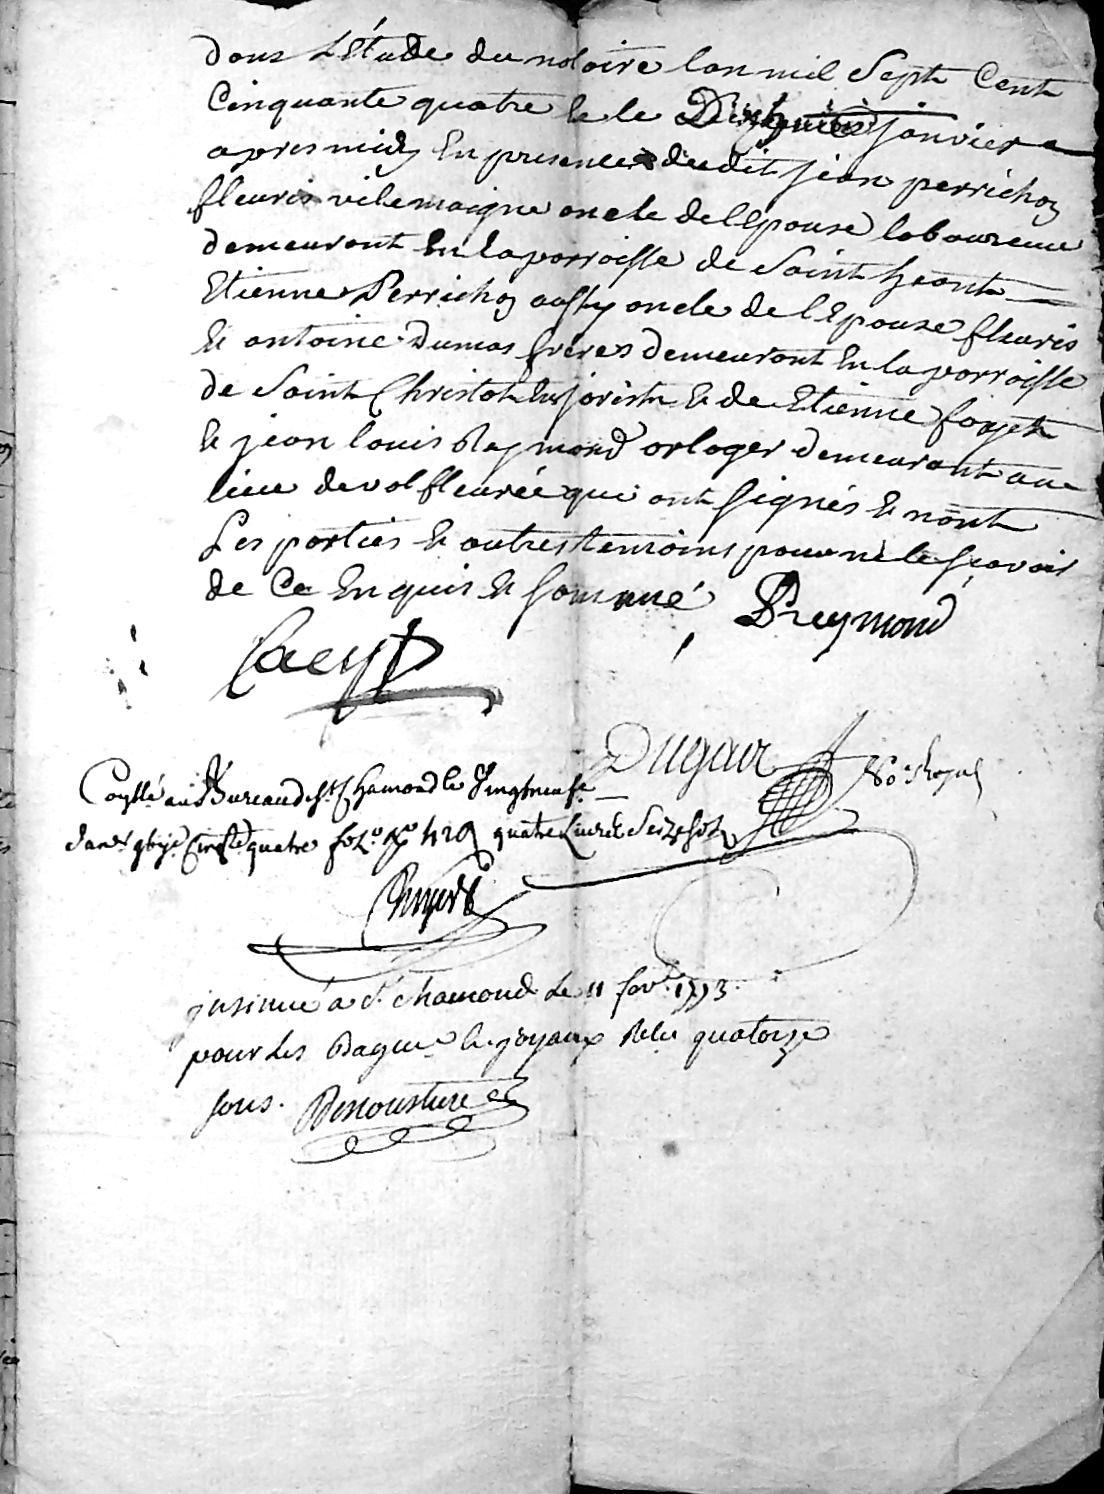 dans L'Etude du notaire lan mil Sept Cent
Cinquante quatre & le janvier
apres midy En presence dudit jean perrichon
fleuris vilemaigne oncle de lEpouse laboureur
demeurant En la parroisse de Saint heant
Etienne Perrichon aussy oncle de lEpouse fleuris
& antoine Dumas freres demeurant En la parroisse
de Saint Christot En jarest & de Etienne fayet
& jean louis Raymond orloger demeurant au
lieu de valfleurée qui ont signés & nont
Les parties & autres temoins pour ne le scavoir
de Ce Enquis & sommé Reymond
faeyt
Dugar No.e Royal
au Bureau de St Chamond le Vingtneuf
janer quatre fol.o quatre Livres Seize sols

insinué a St chamond Le 11 fav.r
pour Les Bague & joyaux Relu quatorze
sous.